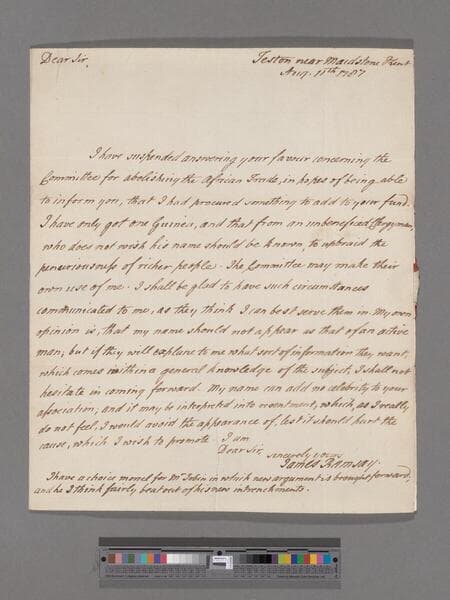 Dear Sir, Teston near Maidstone Kent
Aug. 11th 1787
I have suspended answering your favour concerning the
Committee for abolishing the African Trade, in hopes of being able
to inform you, that I had procured something to add to your fund.
I have only got one Guinea, and that from an unbeneficed Clergyman,
who does not wish his name should be known, to upbraid the
penuriousness of richer people. The Committee may make their
own use of me. I shall be glad to have such circumstances
communicated to me, as they think I can best serve them in. My own
opinion is, that my name should not appear as that of an active
man; but if they will explane to me what sort of information they want,
which comes within a general knowledge of the subject, I shall not
hesitate in coming forward. My name can add no celebrity to your
association, and it may be interpreted into resentment, which, as I really
do not feel, I would avoid the appearance of, lest it should hurt the
cause, which I wish to promote. I am
Dear Sir,
sincerely yours
James Ramsay.
I have a choice morcel for Mr Tobin in which new argument is brought forward,
and he I think fairly beat out of his new intrenchments.